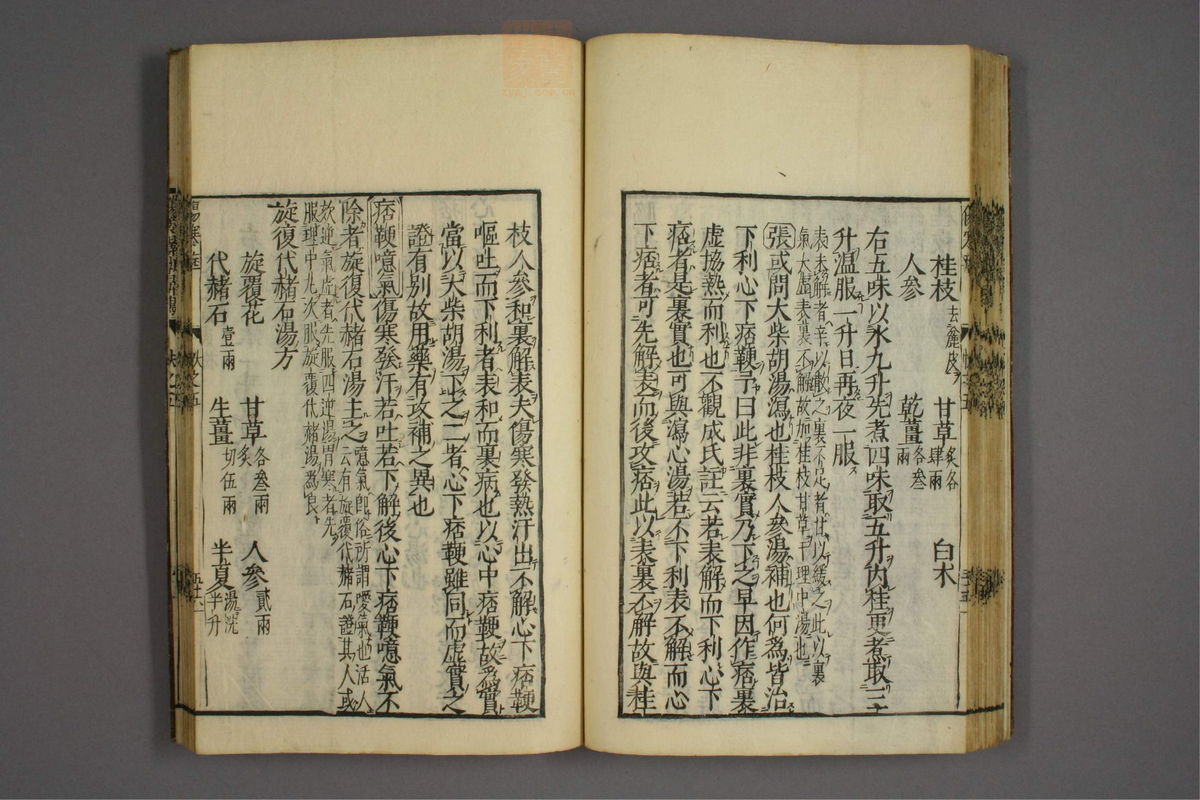 桂枝去麄皮 甘草炙各肆兩 白木
人參 乾薑各叁兩
右五味以水九升先煮四味取五升内桂更煮取三
升温服一升日再夜一服
表未解者辛以散之裏不足者甘以緩之此以裏
氣大虛表裏不解故加桂枝甘草于理中湯也
張或問大柴胡湯瀉也桂枝人參湯補也何爲皆治
下利心下痞鞕予曰此非裏實乃下之早因作痞裏
虛協熱而利也不觀成氏註云若表解而下利心下
痞者是裏實也可與瀉心湯若不下利表不解而心
下痞者可先解表而後攻痞此以表裏不解故與桂
枝人參和裏解表夫傷寒發熱汗出不解心下痞鞕
嘔吐而下利者表和而裏病也以心中痞鞕故爲實
當以大柴胡湯下之二者心下痞鞕雖同而虛實之
證有别故用藥有攻補之異也
痞鞕噫氣傷寒發汗若吐若下解後心下痞鞕噫氣不
除者旋復代赭石湯主之噫氣即俗所謂噯氣也活人
云有旋覆代赭石證其人或
欬逆氣虛者先服四逆湯胃寒者先
服理中丸次服旋覆代赭湯爲良
旋復代赭石湯方
旋覆花 甘草炙各叁兩 人參貳兩
代赭石壹兩 生薑切伍兩 半夏湯洗半升